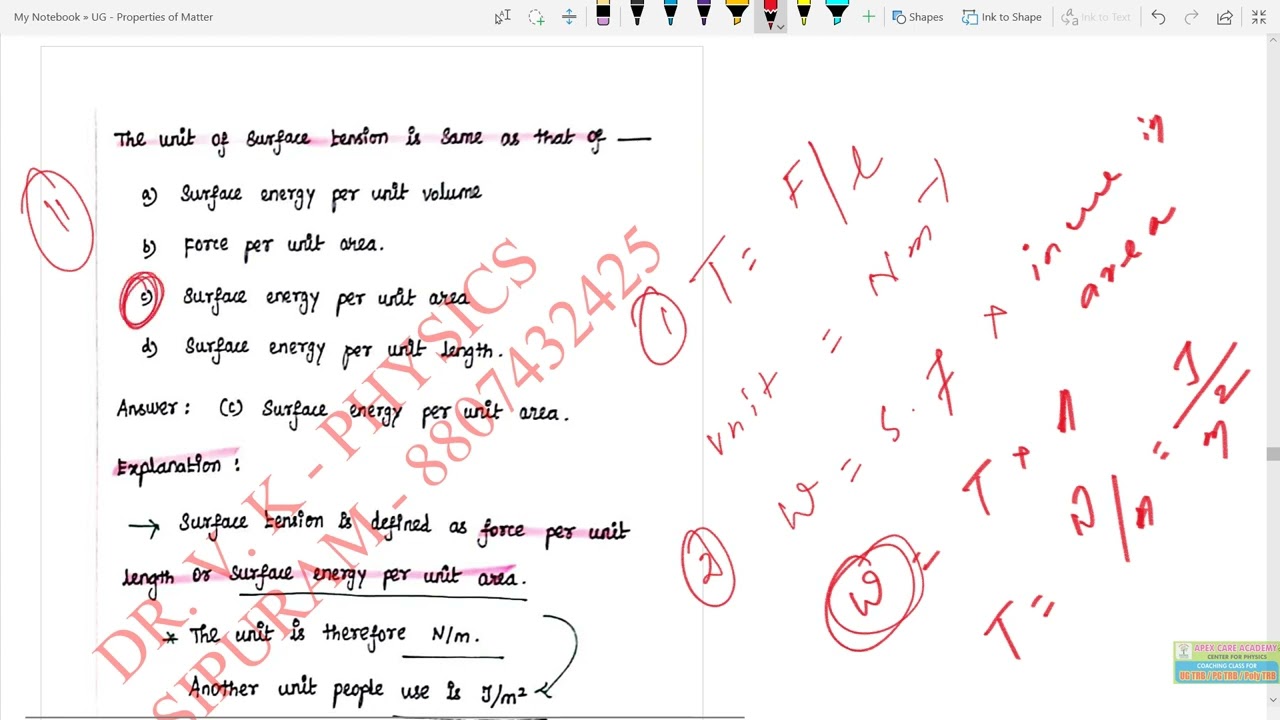 My Notebook » UG - Properties of Matter
Shapes
Ink to Shape
Ink to Text
11
The unit of Surface tension is Same as that of —
a) Surface energy per unit volume
b) Force per unit area.
c) Surface energy per unit area
d) Surface energy per unit length.
Answer: (c) Surface energy per unit area.
Explanation:
→ Surface tension is defined as force per unit
length or Surface energy per unit area.
* The unit is therefore N/m.
Another unit people use is J/m²
DR. V. K - PHYSICS
SIPURAM - 8807432425
1
T = F/l
unit = Nm⁻¹
2
W = S.T × in
area
W = T × A
T = W/A = J/m²
APEX CARE ACADEMY
CENTER FOR PHYSICS
COACHING CLASS FOR
UG TRB / PG TRB / Poly TRB